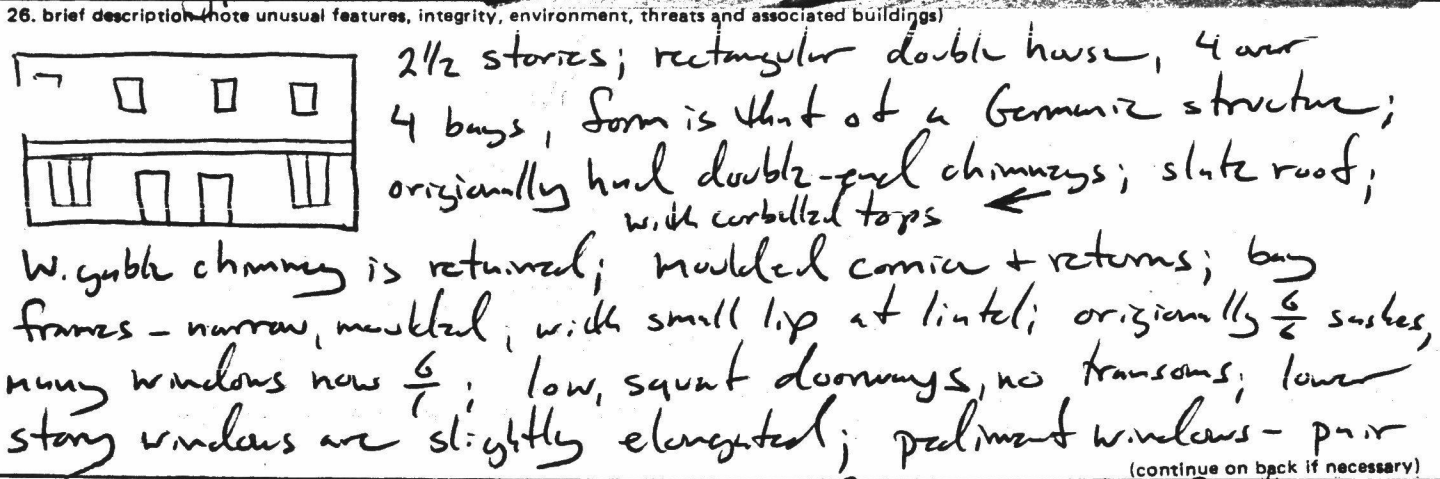 26. brief description (note unusual features, integrity, environment, threats and associated buildings)
2 1/2 stories; rectangular double house, 4 over
4 bays, form is that of a Germanic structure;
originally had double-end chimneys; slate roof;
with corbelled tops
W. gable chimney is retained; moulded cornice + returns; bay
frames - narrow, moulded, with small lip at lintel; originally 6/6 sashes,
many windows now 6/1; low, squat doorways, no transoms; lower
story windows are slightly elongated; pediment windows - pair
(continue on back if necessary)